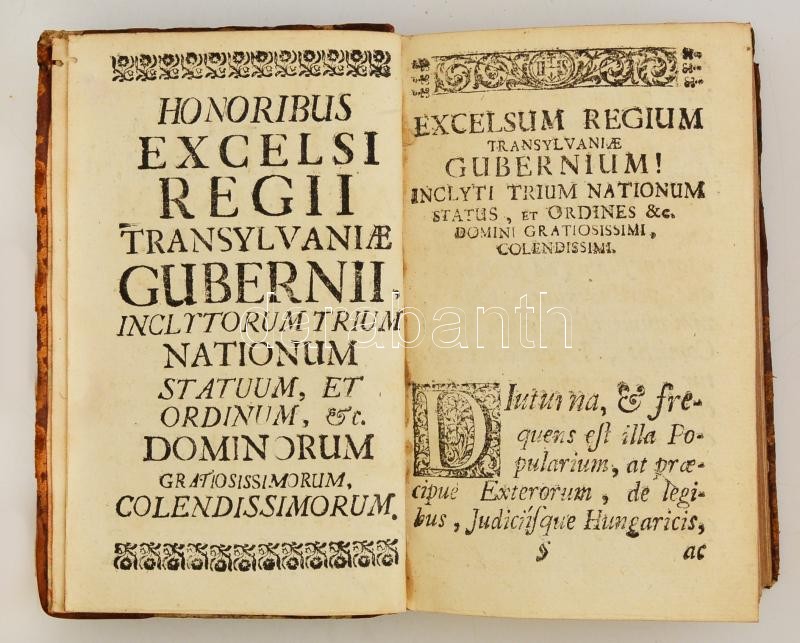 HONORIBUS
EXCELSI
REGII
TRANSYLVANIÆ
GUBERNII,
INCLYTORUM TRIUM
NATIONUM
STATUUM, ET
ORDINUM, &c.
DOMINORUM
GRATIOSISSIMORUM,
COLENDISSIMORUM.
IHS
EXCELSUM REGIUM
TRANSYLVANIÆ
GUBERNIUM!
INCLYTI TRIUM NATIONUM
STATUS, ET ORDINES &c.
DOMINI GRATIOSISSIMI,
COLENDISSIMI.
DIuturna, & fre-
quens est illa Po-
pularium, at præ-
cipuè Exterorum, de legi-
bus, Judiciisque Hungaricis,
§ ac
darabanth